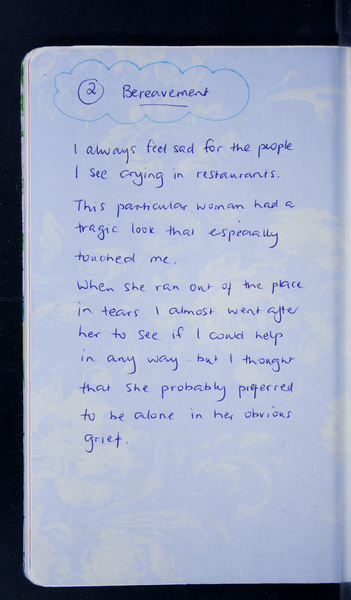 ② Bereavement
I always feel sad for the people
I see crying in restaurants.
This particular woman had a
tragic look that especially
touched me.
When she ran out of the place
in tears I almost went after
her to see if I could help
in any way but I thought
that she probably preferred
to be alone in her obvious
grief.